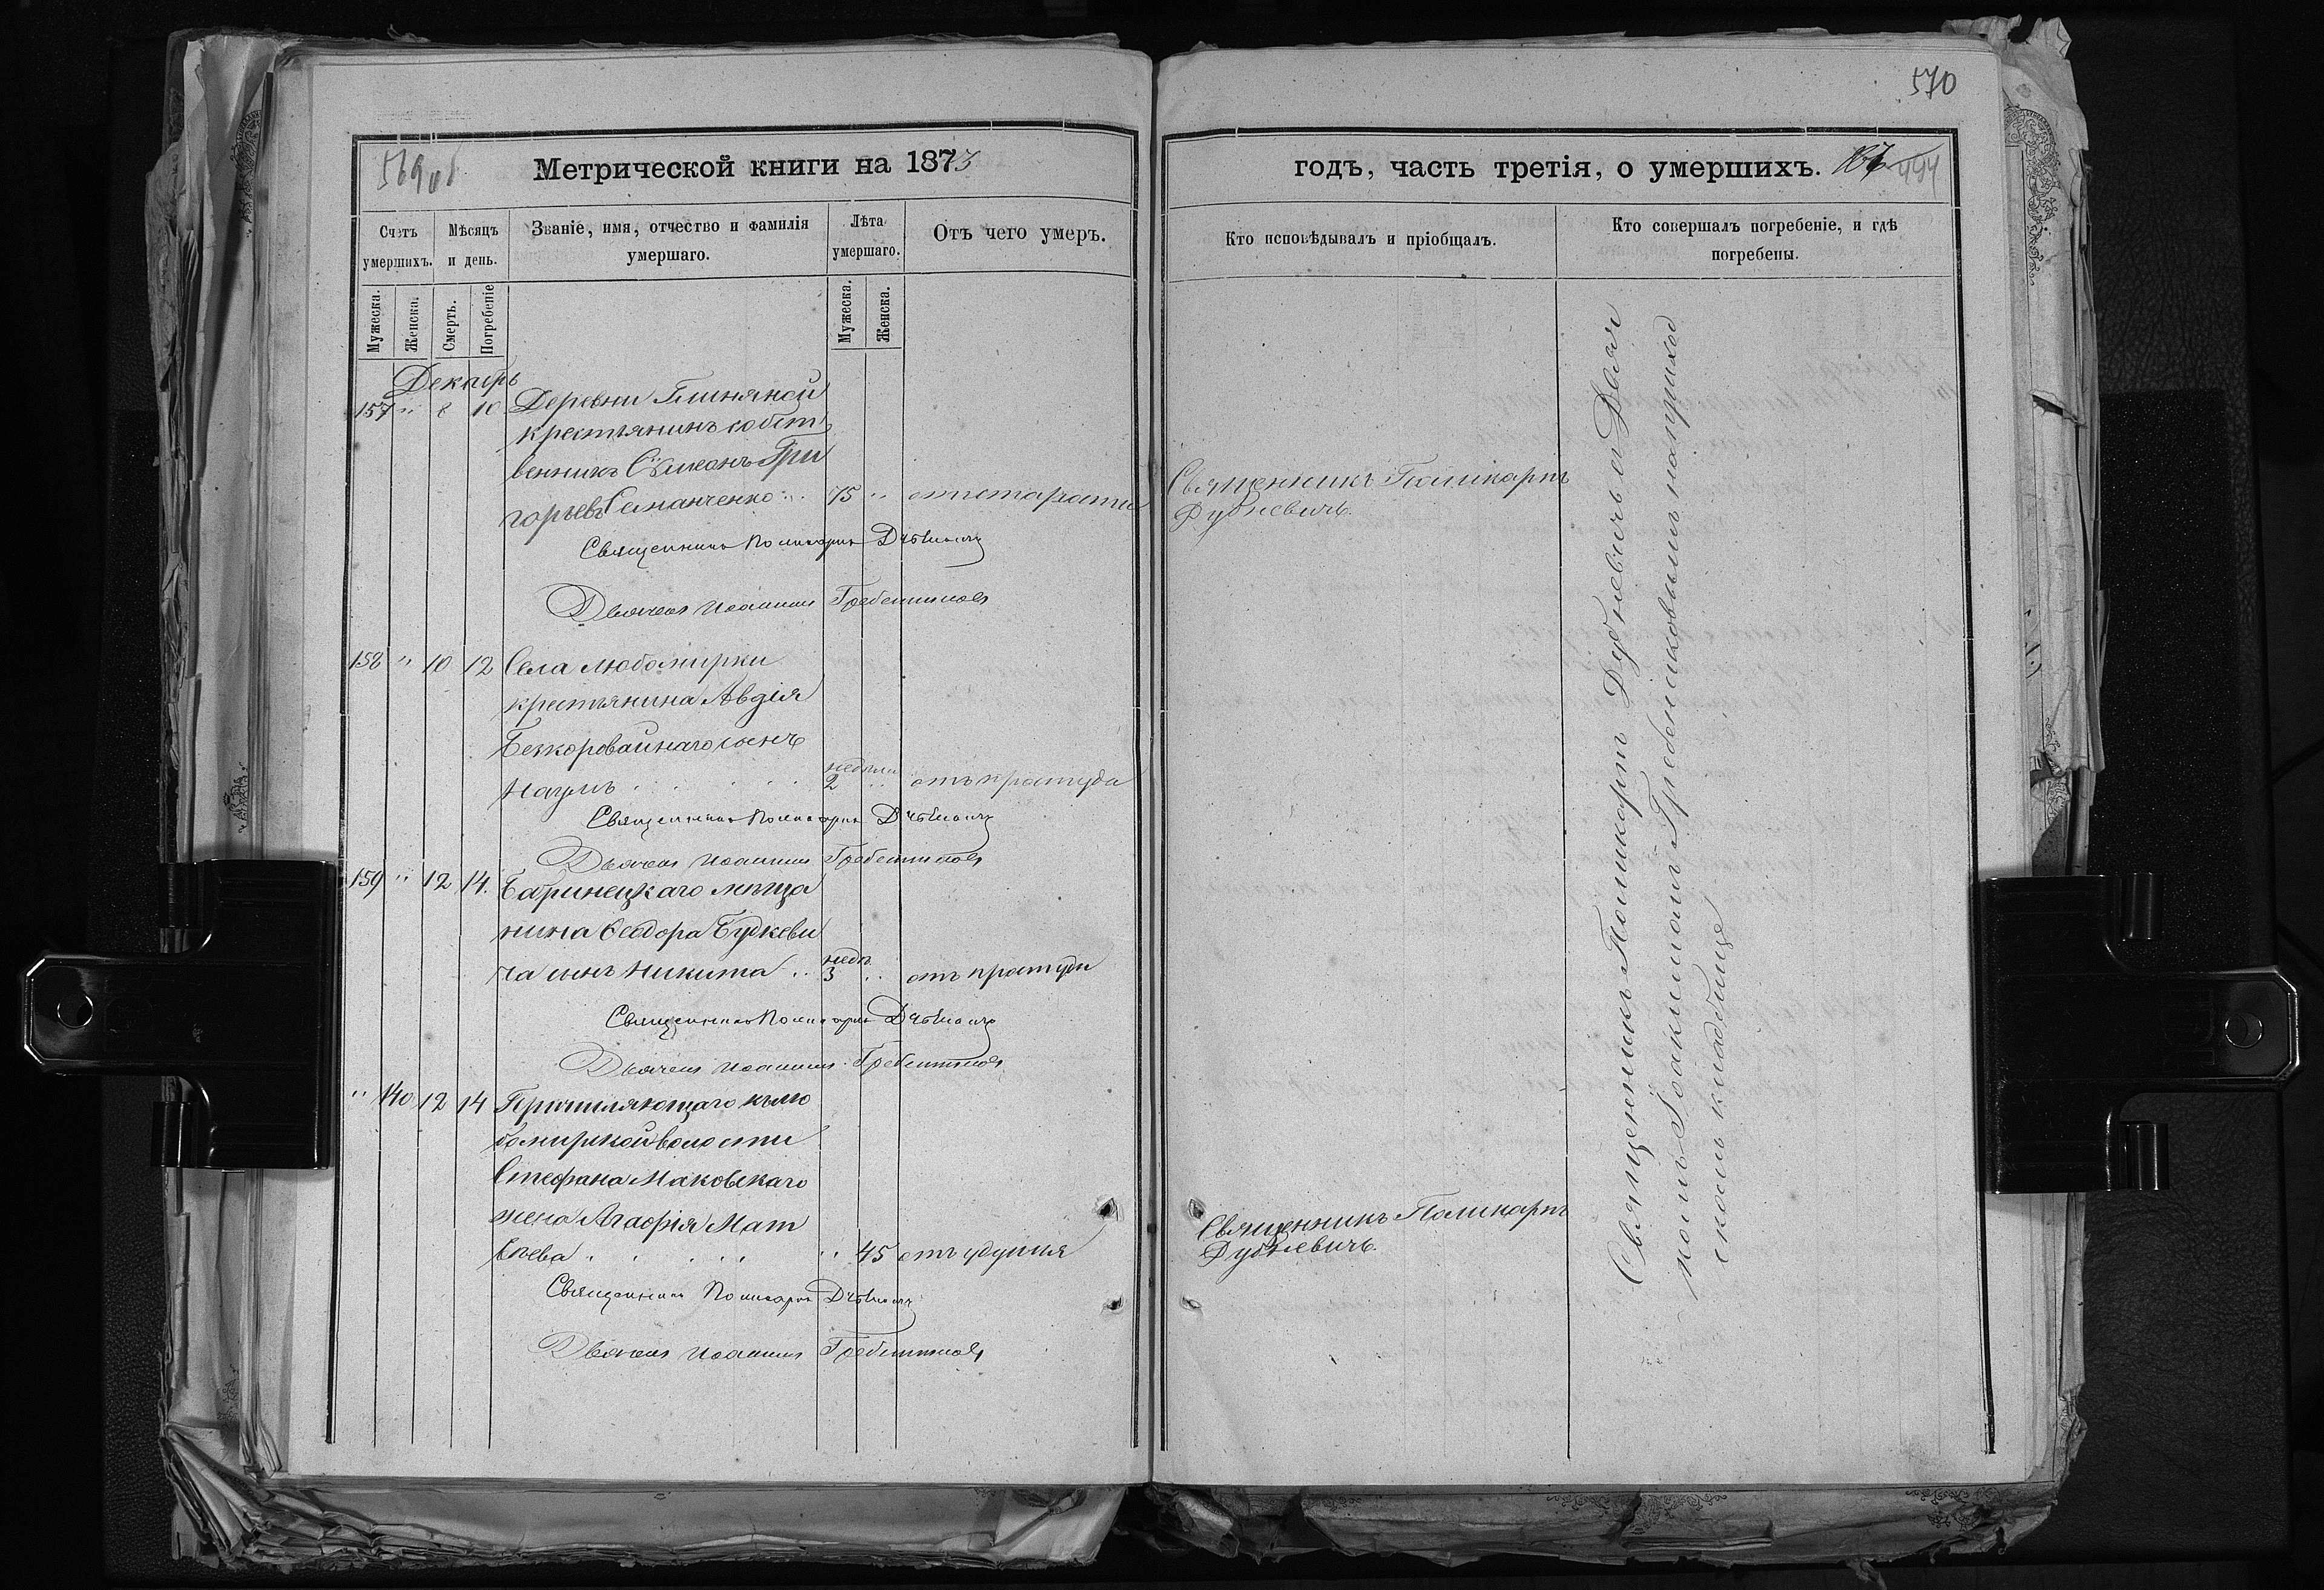 570
569об
Метрической книги на 1873
годъ, часть третія, о умершихъ. 494
Счетъ умершихъ.
Мѣсяцъ и день.
Званіе, имя, отчество и фамилія умершаго.
Лѣта умершаго.
Отъ чего умеръ.
Кто исповѣдывалъ и пріобщалъ.
Кто совершалъ погребеніе, и гдѣ погребены.
Мужеска.
Женска.
Смерть.
Погребеніе
Мужеска.
Женска.
Декабрь
157 " 8 10 Деревни Глиняной
крестьянинъ собст
венникъ Сѵмеонъ Гри
горьевъ Семанченко 75 " отъ старости
Священникъ Поликарпъ
Дубневичъ.
Священникъ Поликарпъ Дубневичъ
Дьячекъ Иоакимъ Гребенниковъ
158 " 10 12 Села Любомирки
крестьянина Авдія
Безкоровайнаго сынъ
Наумъ недѣли 2 " отъ простуды
Священникъ Поликарпъ Дубневичъ
Дьячекъ Иоакимъ Гребенниковъ
159 " 12 14. мѣща
нина Ѳеодора Будкеви
ча сынъ Никита недѣ. 3 " отъ простуды
Священникъ Поликарпъ Дубневичъ
Дьячекъ Иоакимъ Гребенниковъ
" 140 12 14 къ Лю
бомирской волости
Стефана Маковскаго
жена Агафія Мат
вѣева " 45 отъ удушія
Священникъ Поликарпъ
Дубневичъ.
Священникъ Поликарпъ Дубневичъ
Дьячекъ Иоакимъ Гребенниковъ
Священникъ Поликарпъ Дубневичъ съ Дьяч
комъ Іоакимомъ Гребенниковымъ на приход
скомъ кладбищѣ